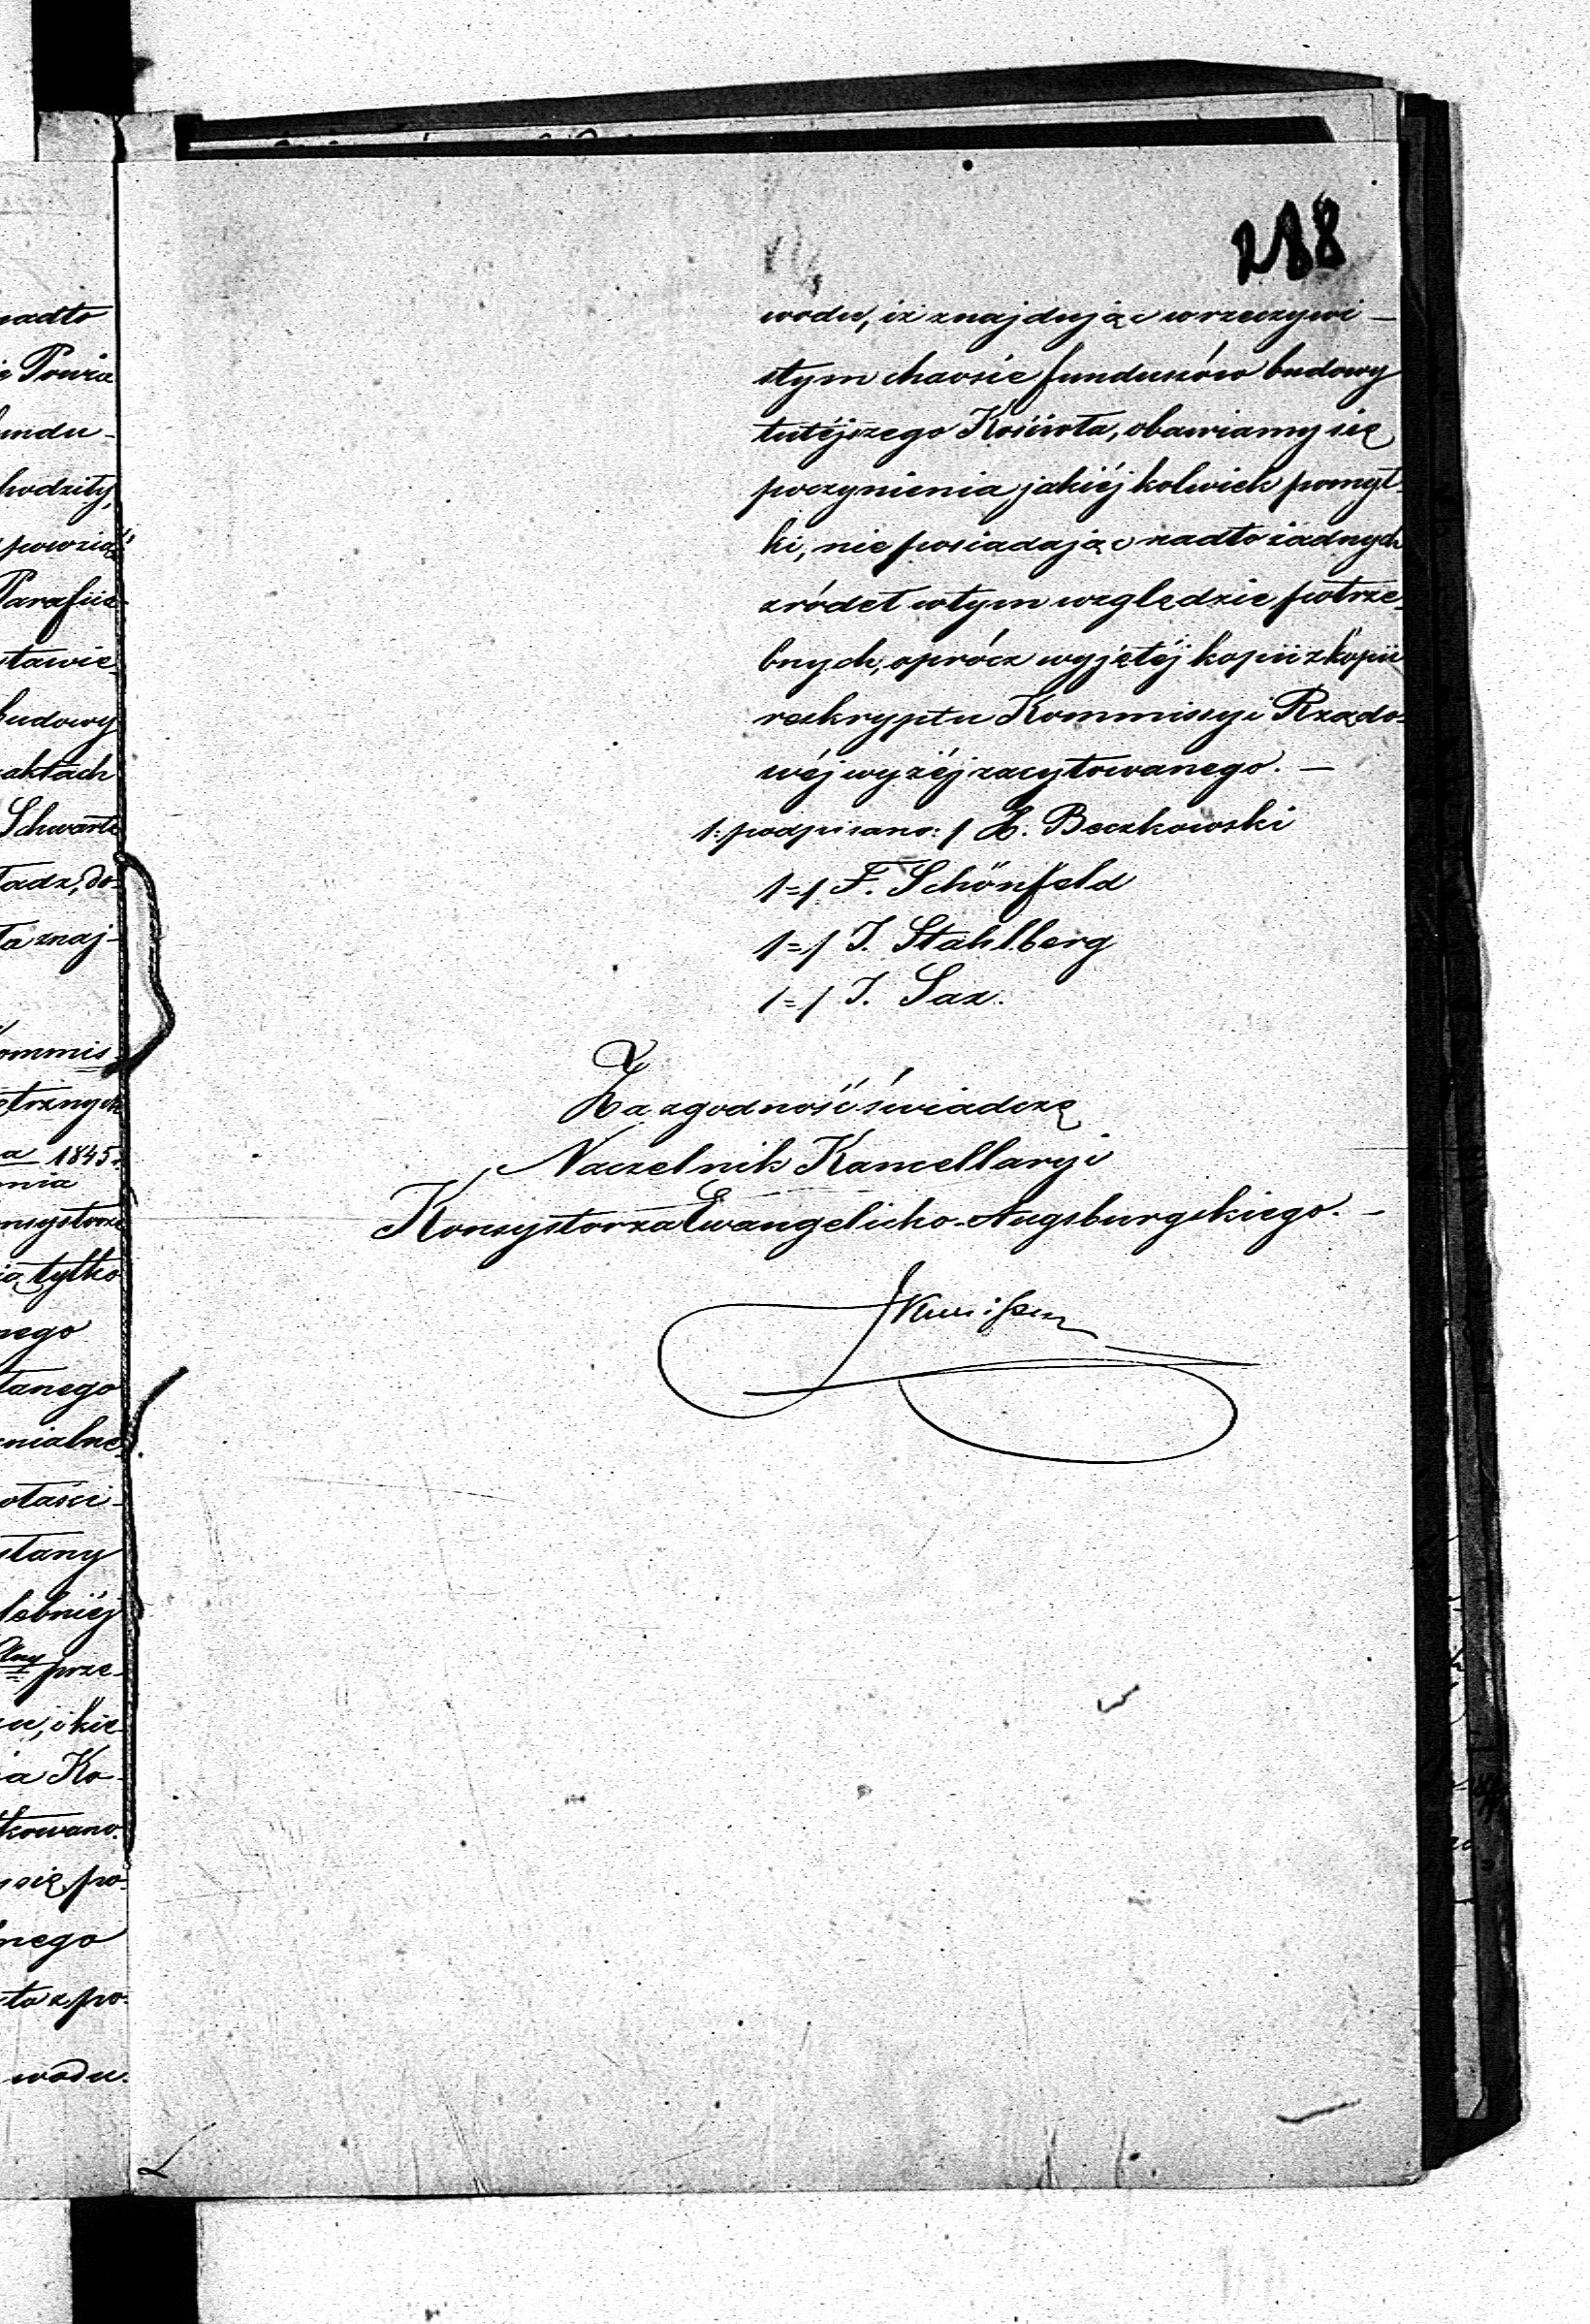 nadto
Powia
undu-
hodziły,
powzią
Parafii
stawie
budowy
aktach
Schwartz
adz, do-
ta znaj-
ommis-
ętrznych
1845.
nia
nsystorza
tylko
nego
tanego
nialne
otaści-
stany
lebniéj
prze-
i kie-
ia Ko-
kowano.
się po-
nego
ta z po-
wodu.
288
wodu, iż znajdując w rzeczywi-
stym chaosie funduszów budowy
tutéjszego Kościoła, obawiamy się
poczynienia jakiéj kolwiek pomył-
ki, nie posiadając nadto żadnych
źródeł w tym względzie potrze-
bnych, oprócz wyjętéj kopii z kopii
reskryptu Kommissyi Rządo-
wéj wyżéj zacytowanego. —
/:podpisano:/ H. Beczkowski
/=/ F. Schönfeld
/=/ J. Stahlberg
/=/ J. Sax.
Za zgodność świadczę
Naczelnik Kancellaryi
Konsystorza Ewangelicko-Augsburgskiego. —